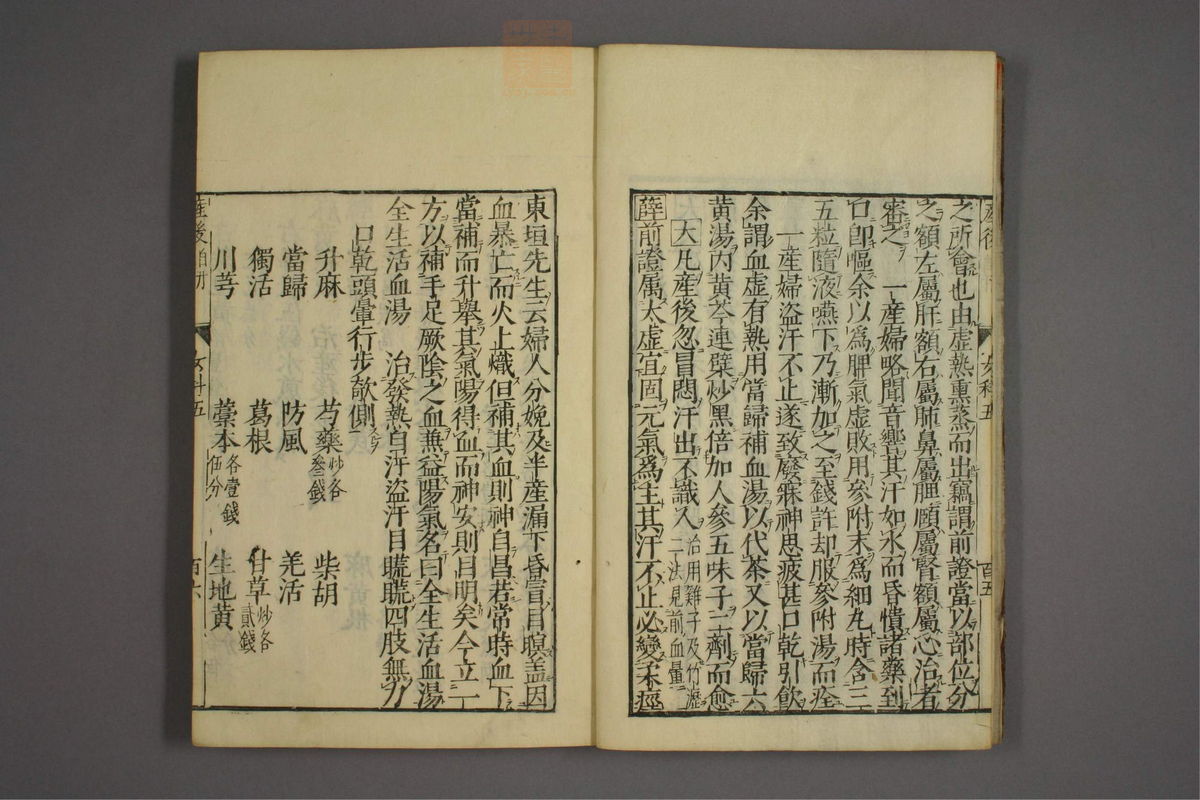 之所會也由虛熱熏蒸而出竊謂前證當以部位分
之額左屬肝額右屬肺鼻屬脾頤屬腎額屬心治者
審之 一産婦略聞音響其汗如水而昏憒諸藥到
口卽嘔余以爲脾氣虛敗用參附末爲細丸時含三
五粒隨液嚥下乃漸加之至錢許却服參附湯而痊
一産婦盜汗不止遂致廢寐神思疲甚口乾引飮
余謂血虛有熱用當歸補血湯以代茶又以當歸六
黄湯內黄芩連蘗炒黑倍加人參五味子二劑而愈
大凡産後忽冒悶汗出不識人治用雞子及竹瀝二法見前血暈
薛前證属太虛宜固元氣為主其汗不止必變柔痙
東垣先生云婦人分娩及半産漏下昏冒目瞑盖因
血暴亡而火上熾但補其血則神自昌若常時血下
當補而升舉其氣陽得血而神安則目明矣今立一
方以補手足厥陰之血兼益陽氣名曰全生活血湯
全生活血湯 治發熱自汗盜汗目䀮䀮四肢無力
口乾頭暈行步欹側
升麻 芍藥炒各叁錢 柴胡
當歸 防風 羌活
獨活 葛根 甘草炒各貳錢
川芎 藁本各壹錢伍分 生地黄
産後 女科五 百六
女科五 百五